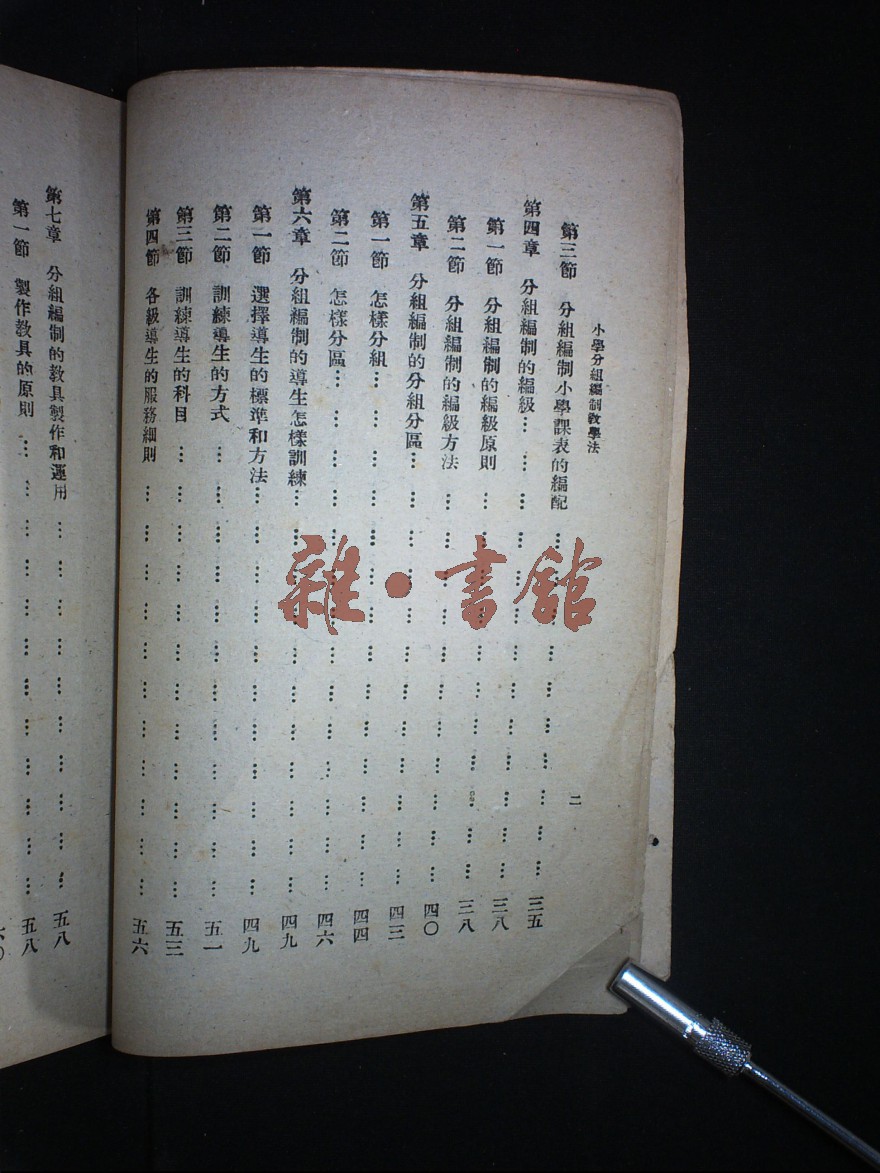 小學分組編制教學法
二
第三節　分組編制小學課表的編配……………………………三五
第四章　分組編制的編級……………………………三八
第一節　分組編制的編級原則……………………………三八
第二節　分組編制的編級方法……………………………四〇
第五章　分組編制的分組分區……………………………四三
第一節　怎樣分組……………………………四四
第二節　怎樣分區……………………………四六
第六章　分組編制的導生怎樣訓練……………………………四九
第一節　選擇導生的標準和方法……………………………四九
第二節　訓練導生的方式……………………………五一
第三節　訓練導生的科目……………………………五三
第四節　各級導生的服務細則……………………………五六
第七章　分組編制的教具製作和運用……………………………五八
第一節　製作教具的原則……………………………五八
雜・書館